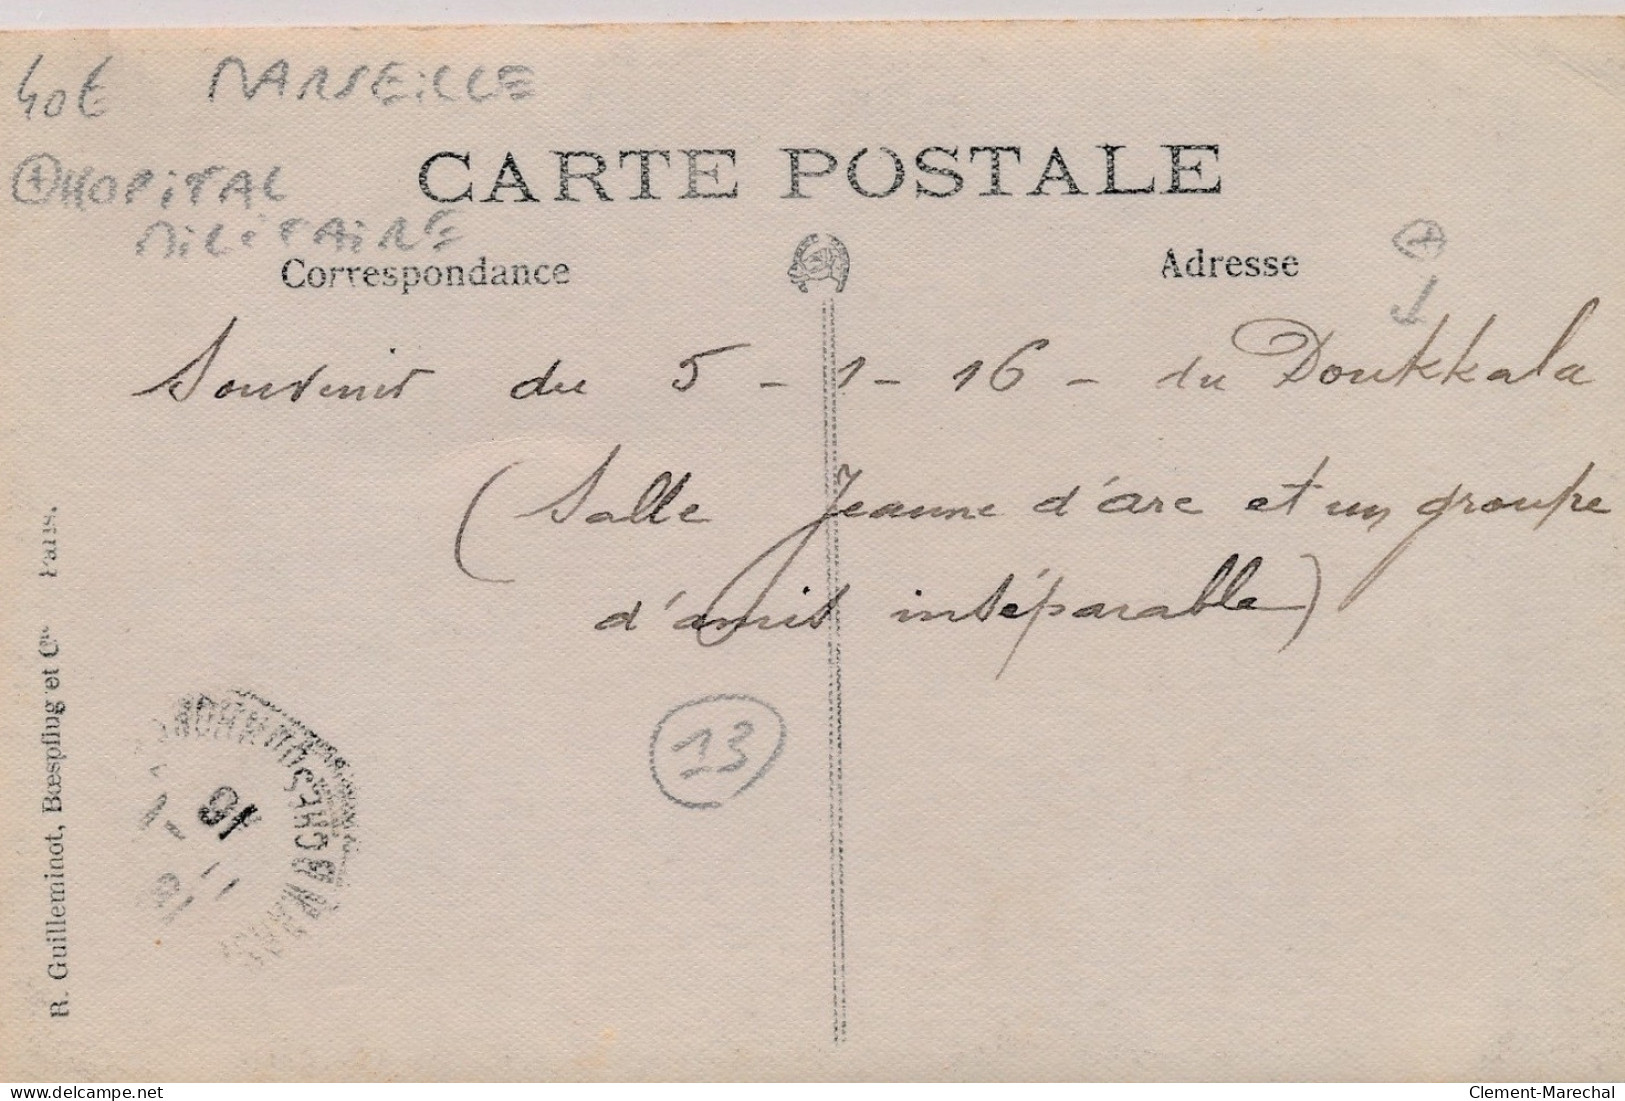 40€ MARSEILLE
CARTE POSTALE
HOPITAL
MILITAIRE
Correspondance
Adresse
Souvenir du 5 - 1 - 16 - du Doukkala
(Salle Jeanne d'arc et un groupe
d'amis inséparable)
13
R. Guilleminot, Bœspflug et Cie Paris.
delcampe.net
Clement-Marechal